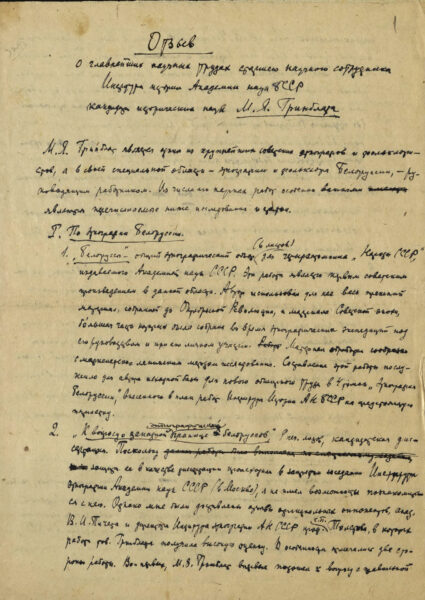 1
Отзыв
о главнейших научных трудах старшего научного сотрудника
Института истории Академии наук БССР
кандидата исторических наук М. Я. Гринблата
М. Я. Гринблат является одним из крупнейших советских этнографов и фолькло-
ров, а в своей специальной области – этнографии и фольклора Белоруссии, – ру-
ководящим работником. Из числа его научных работ особенно
являются перечисленные ниже исследования
I. По этнографии Белоруссии.
1. "Белоруссы" общий этнографический обзор для "Народы СССР",
издаваемого Академией наук СССР. Эта работа является первым советским
произведением в данной области. Автор использовал для нее весь прежний
материал, собранный до Октябрьской Революции, и материалы Советской эпохи,
большая часть которых была собрана во время этнографических экспедиций под
его руководством и при его личном участии. Материал
с марксистско-ленинским методом исследования. Составление этой работы послу-
жило для автора исходной базой для нового обширного труда в "Этнография
Белоруссии", внесенного в план работ Института Истории АН БССР на
пятилетку.
2. "К вопросу о границе белоруссов". Рукопись, кандидатская дис-
сертация. Поскольку
защищал ее в качестве диссертации в заседании Института
этнографии Академии наук СССР (в Москве), я не имел возможности познакомиться
с нею. Однако мне были официальных оппонентов, акад.
В. И. Пичета и Института этнографии АН СССР проф. Толстова, в которых
работа тов. Гринблата получила высокую оценку. В особенности отмечались две сто-
роны работы. Во-первых, М. Я. Гринблат подошел к вопросу с